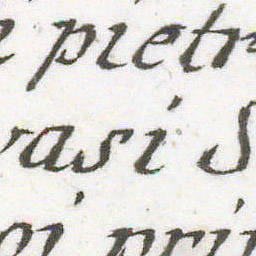 pietr
vasi S
oi prin